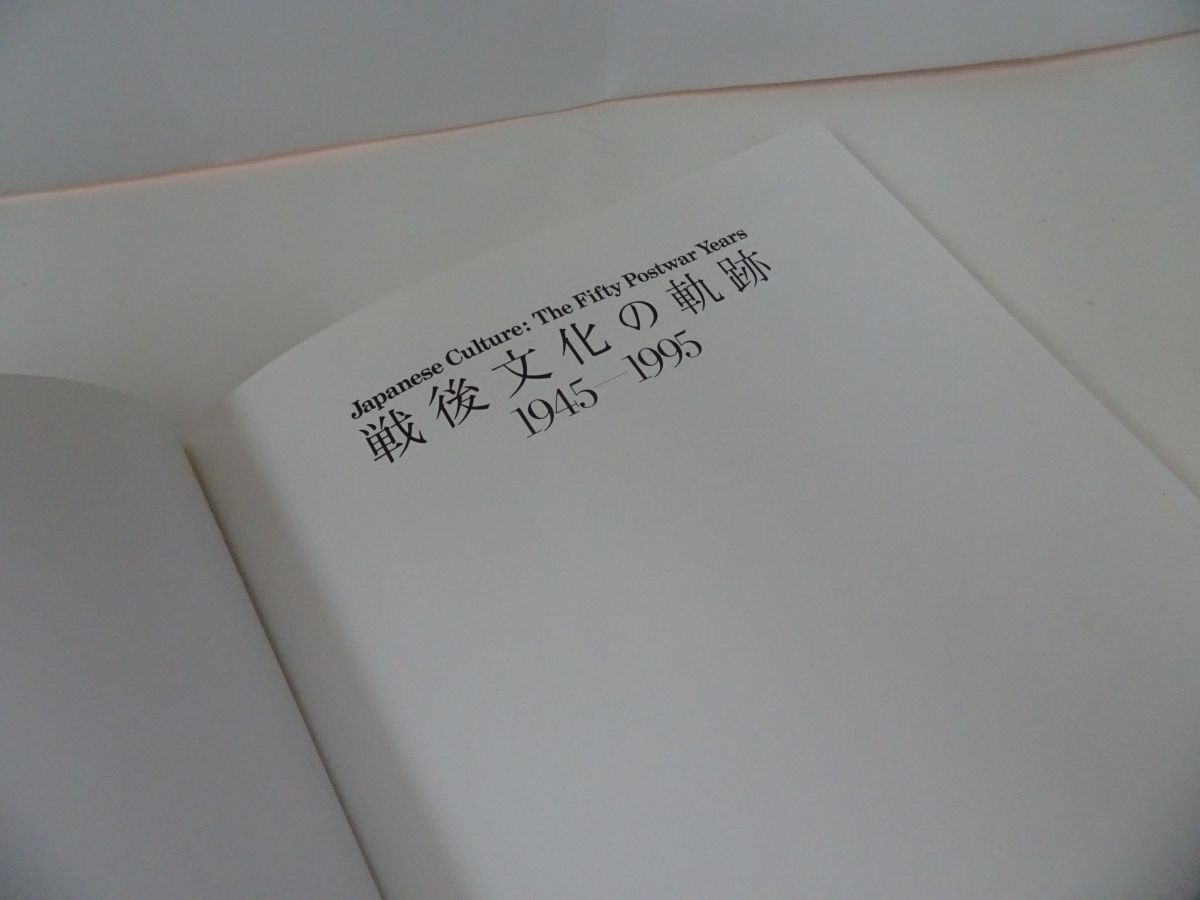 Japanese Culture: The Fifty Postwar Years
戦後文化の軌跡
1945—1995